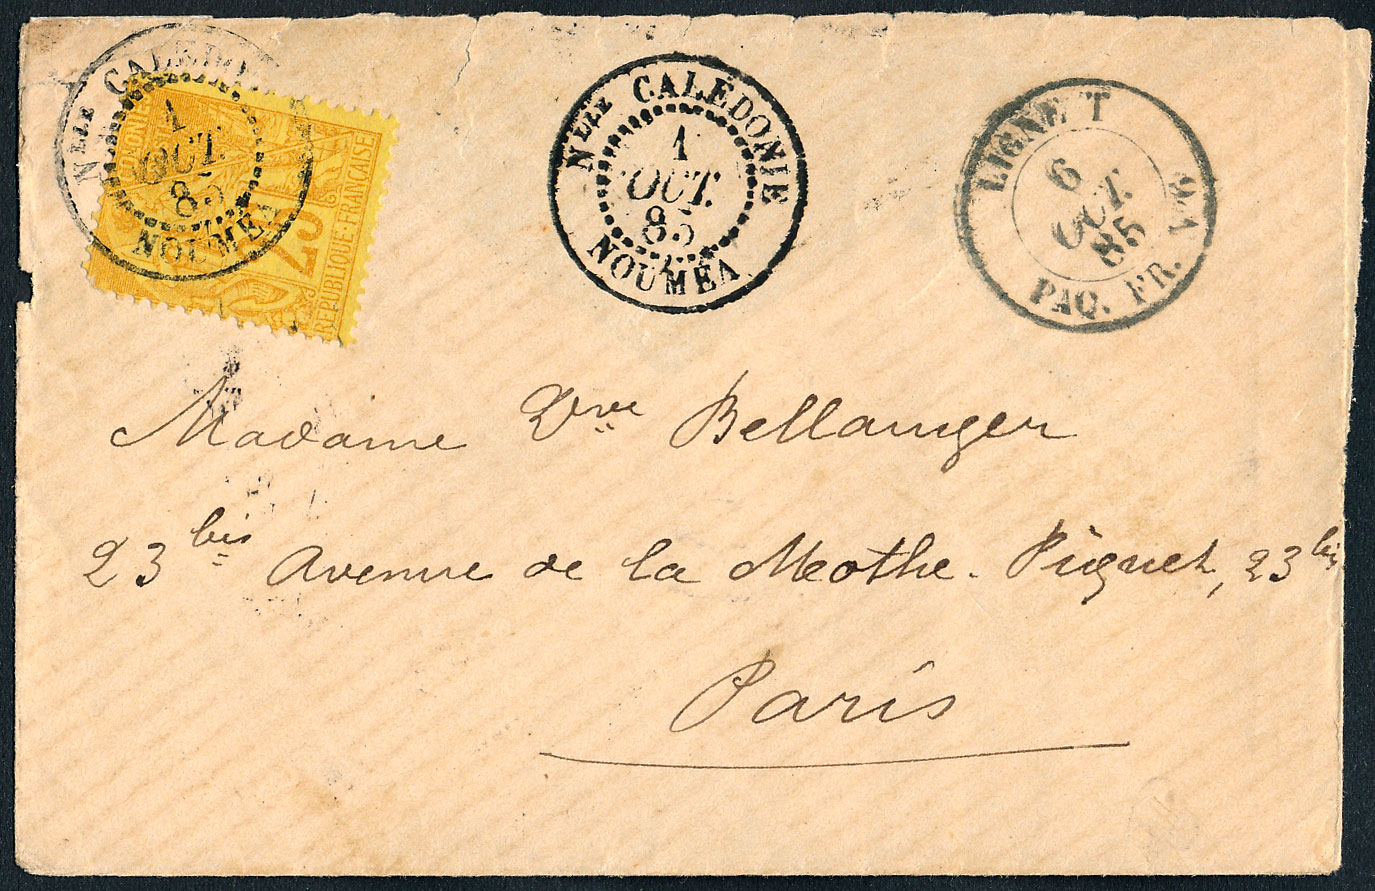 Nlle CALÉDO
1
OCT.
85
NOUMÉA
25
RÉPUBLIQUE-FRANÇAISE
Nlle CALÉDONIE
1
OCT.
85
NOUMÉA
LIGNE T
6
OCT.
85
PAQ. FR.
Madame Vve Bellanger
23 bis Avenue de la Mothe-Piquet, 23 bis
Paris